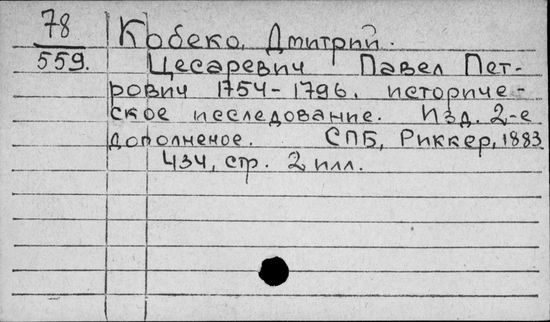 78 Кобеко, Дмитрий.
559. Цесаревич Павел Пет-
рович 1754-1796. историче-
ское исследование. Изд. 2-е
дополненое. СПБ, Риккер, 1883
434, стр. 2 илл.